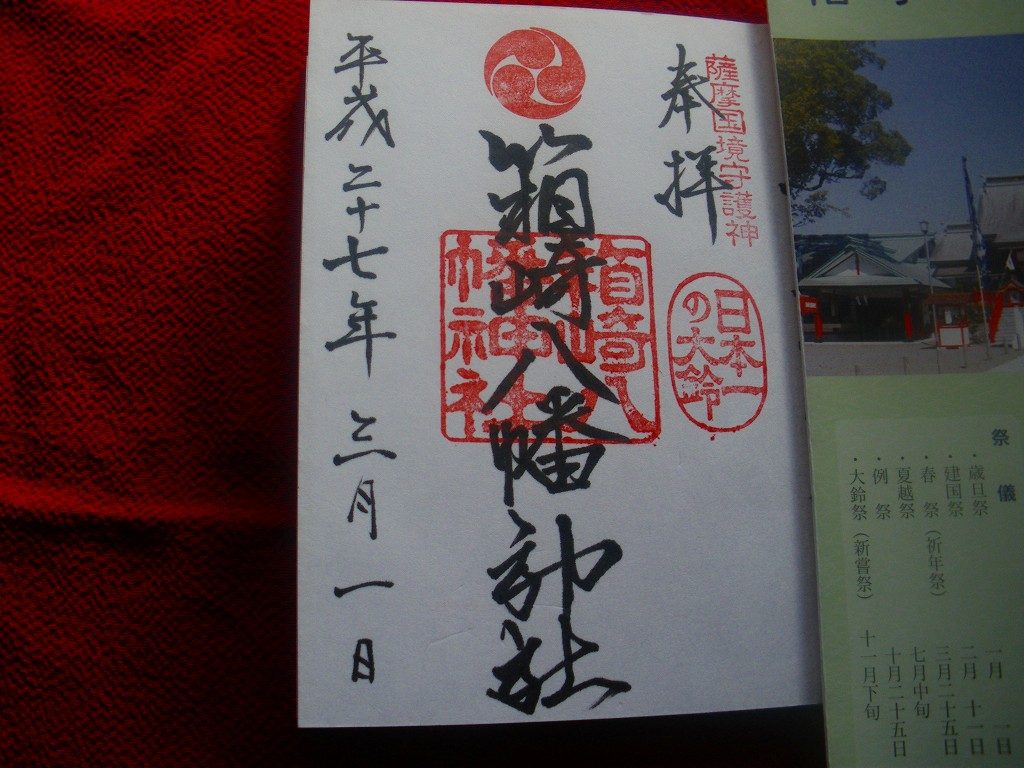 祭儀
・歳旦祭 一月 一日
・建国祭 二月 十一日
・春 祭(祈年祭) 三月二十五日
・夏越祭 七月中旬
・例 祭 十月二十五日
・大鈴祭(新嘗祭) 十一月下旬
薩摩国境守護神
奉拝
日本一
の大鈴
箱崎八幡神社
箱崎八
幡神社
平成二十七年三月一日